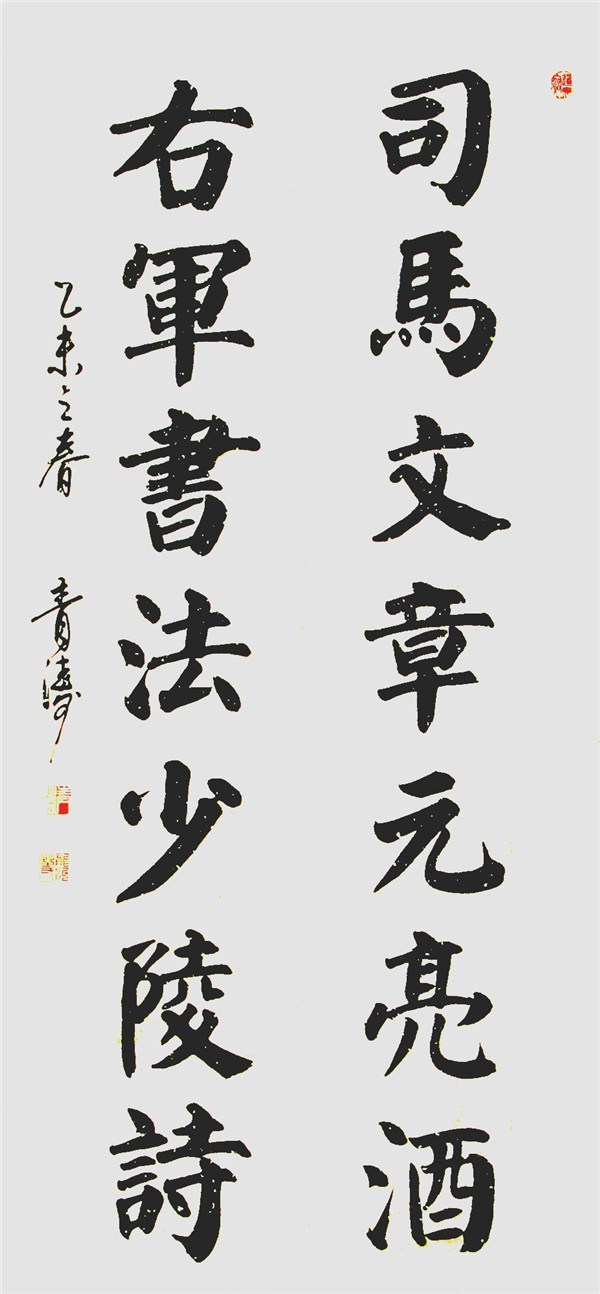 司馬文章元亮酒
右軍書法少陵詩
乙未之春 青濤